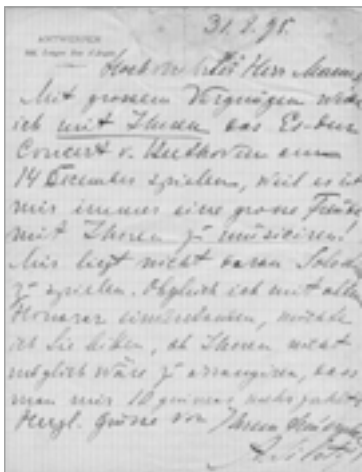 31.8.95.
ANTWERPEN
Hochverehrter Herr
Mit grossem Vergnügen werde
ich mit Ihnen das Es-dur
Concert v. Beethoven am
14 December spielen, weil es ist
mir immer eine grosse Freude,
mit Ihnen zu musiciren!
Mir liegt nicht daran Solo
zu spielen. Obgleich ich mit allem
Honorar einverstanden, möchte
ich Sie bitten, ob Ihnen nicht
möglich wäre zu arrangiren, dass
man mir 10 guineas mehr
Herzl. Grüsse von Ihrem